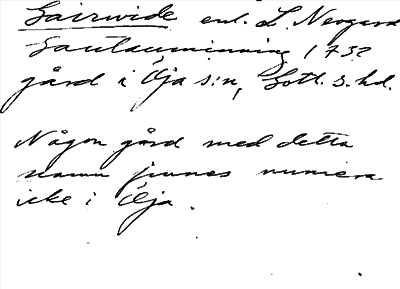 Gairvide enl. L. Neogard
Gautauminning 1732
gård i Öja s:n, Gotl. s. hd.
Någon gård med detta
namn finnes numera
icke i Öja.